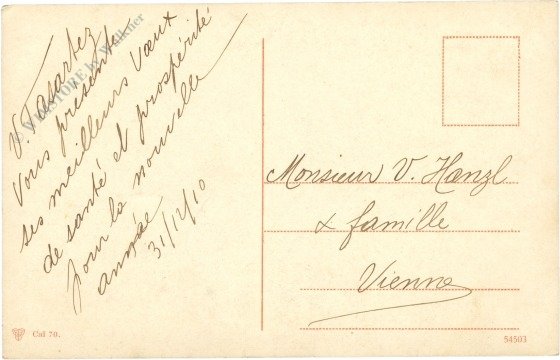 V. Tasartez
Vous présente
ses meilleurs vœux
de santé et prospérité
pour la nouvelle
année
31/12/10
© WEBSTORE by Walkner
Monsieur V. Hanzl
& famille
Vienne
Cal 70.
54503